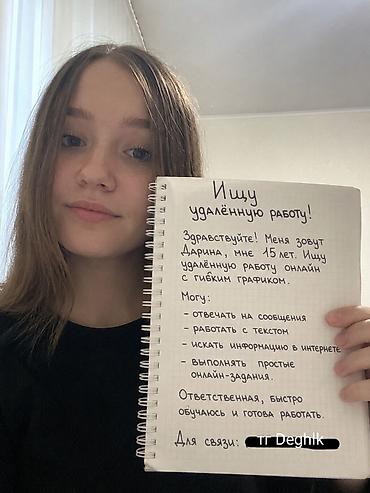 Ищу
удалённую работу!
Здравствуйте! Меня зовут
Дарина, мне 15 лет. Ищу
удалённую работу онлайн
с гибким графиком.
Могу:
- отвечать на сообщения
- работать с текстом
- искать информацию в интернете
- выполнять простые
онлайн-задания.
Ответственная, быстро
обучаюсь и готова работать.
Для связи: тг Deghlk